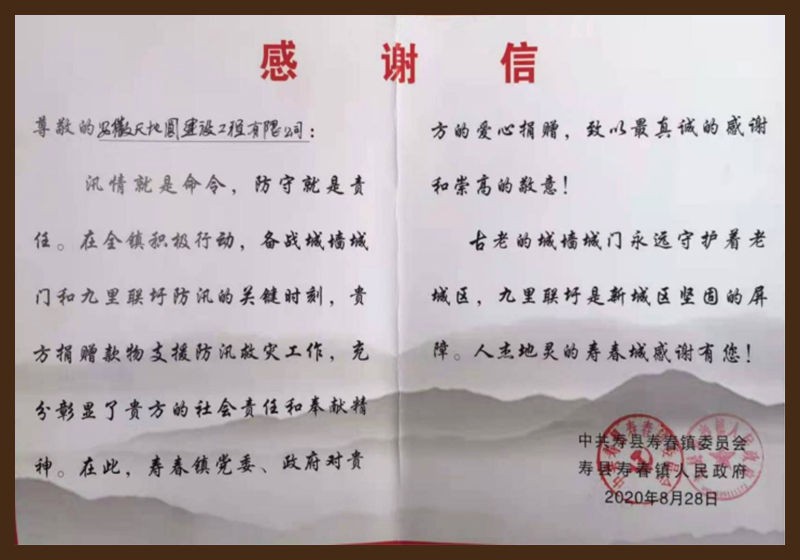 感谢信
尊敬的安徽天地圆建设工程有限公司：
汛情就是命令，防守就是责
任。在全镇积极行动，备战城墙城
门和九里联圩防汛的关键时刻，贵
方捐赠款物支援防汛救灾工作，充
分彰显了贵方的社会责任和奉献精
神。在此，寿春镇党委、政府对贵
方的爱心捐赠，致以最真诚的感谢
和崇高的敬意！
古老的城墙城门永远守护着老
城区，九里联圩是新城区坚固的屏
障。人杰地灵的寿春城感谢有您！
中共寿县寿春镇委员会
寿县寿春镇人民政府
2020年8月28日